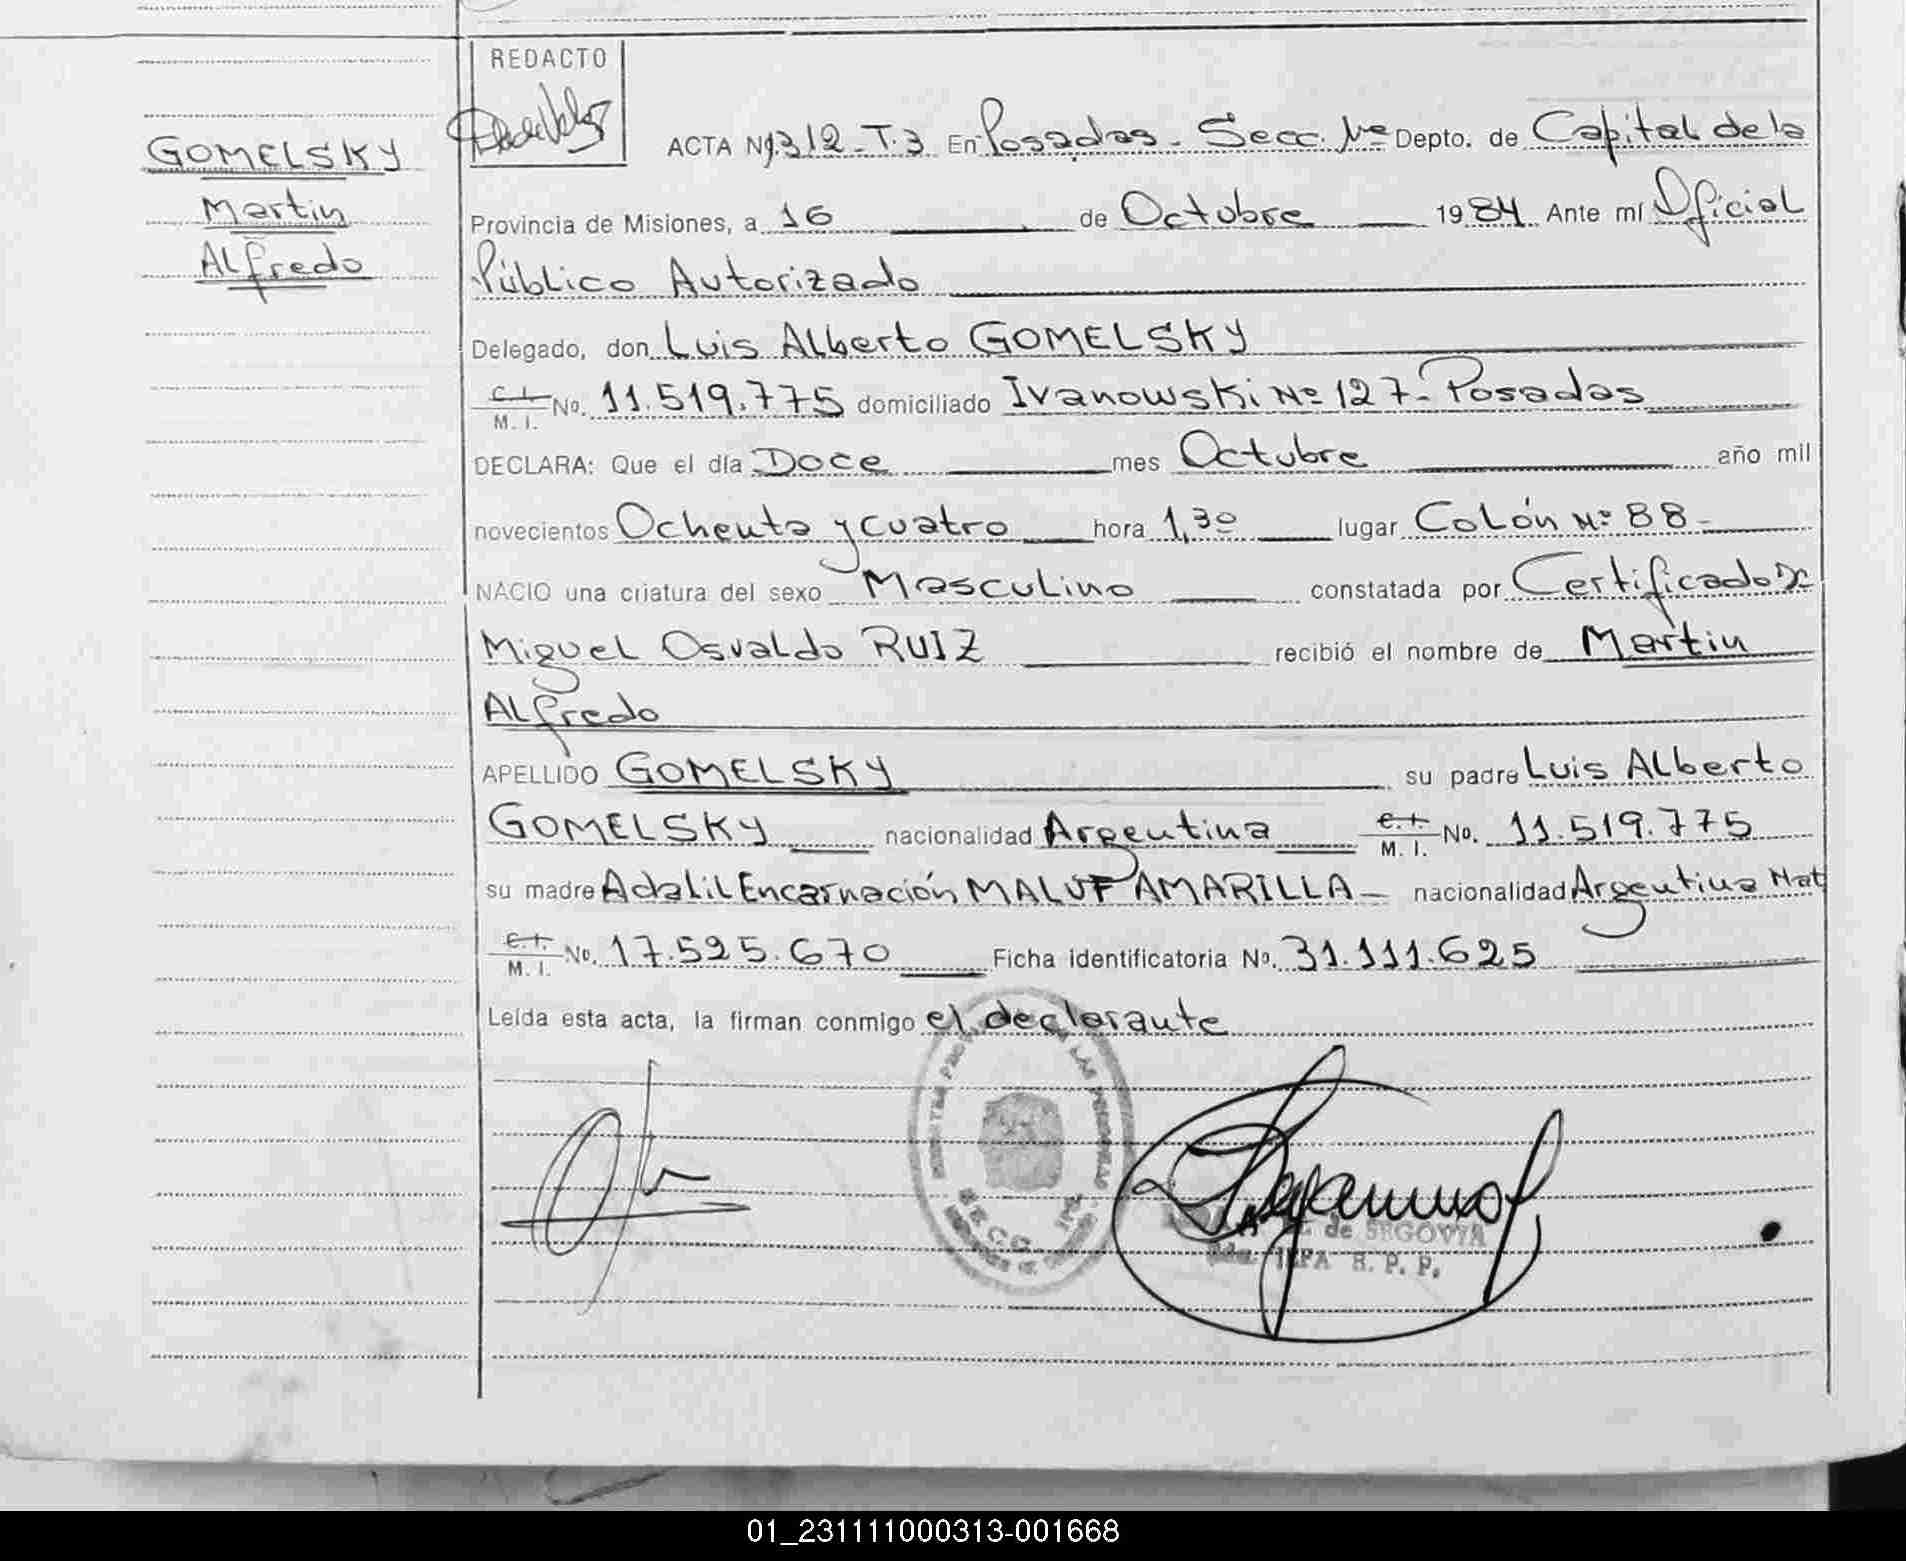 REDACTO
GOMELSKY
Martin
Alfredo
ACTA Nº 1.312 - T.3 En Posadas - Secc. 1ra Depto. de Capital de la
Provincia de Misiones, a 16 de Octubre 1984 Ante mí Oficial
Público Autorizado
Delegado, don Luis Alberto GOMELSKY
C.I. M. I. No. 11.519.775 domiciliado Ivanowski Nº 127 - Posadas
DECLARA: Que el día Doce mes Octubre año mil
novecientos Ochenta y cuatro hora 1,30 lugar Colón Nº 88 -
NACIO una criatura del sexo Masculino constatada por Certificado Dr.
Miguel Osvaldo RUIZ recibió el nombre de Martin
Alfredo
APELLIDO GOMELSKY su padre Luis Alberto
GOMELSKY nacionalidad Argentina C.I. M. I. No. 11.519.775
su madre Adalil Encarnación MALUF AMARILLA - nacionalidad Argentina Nat
C.I. M. I. No. 17.525.670 Ficha identificatoria No. 31.111.625
Leída esta acta, la firman conmigo el declarante
de SEGOVIA
JEFA R. P. P.
01_231111000313-001668